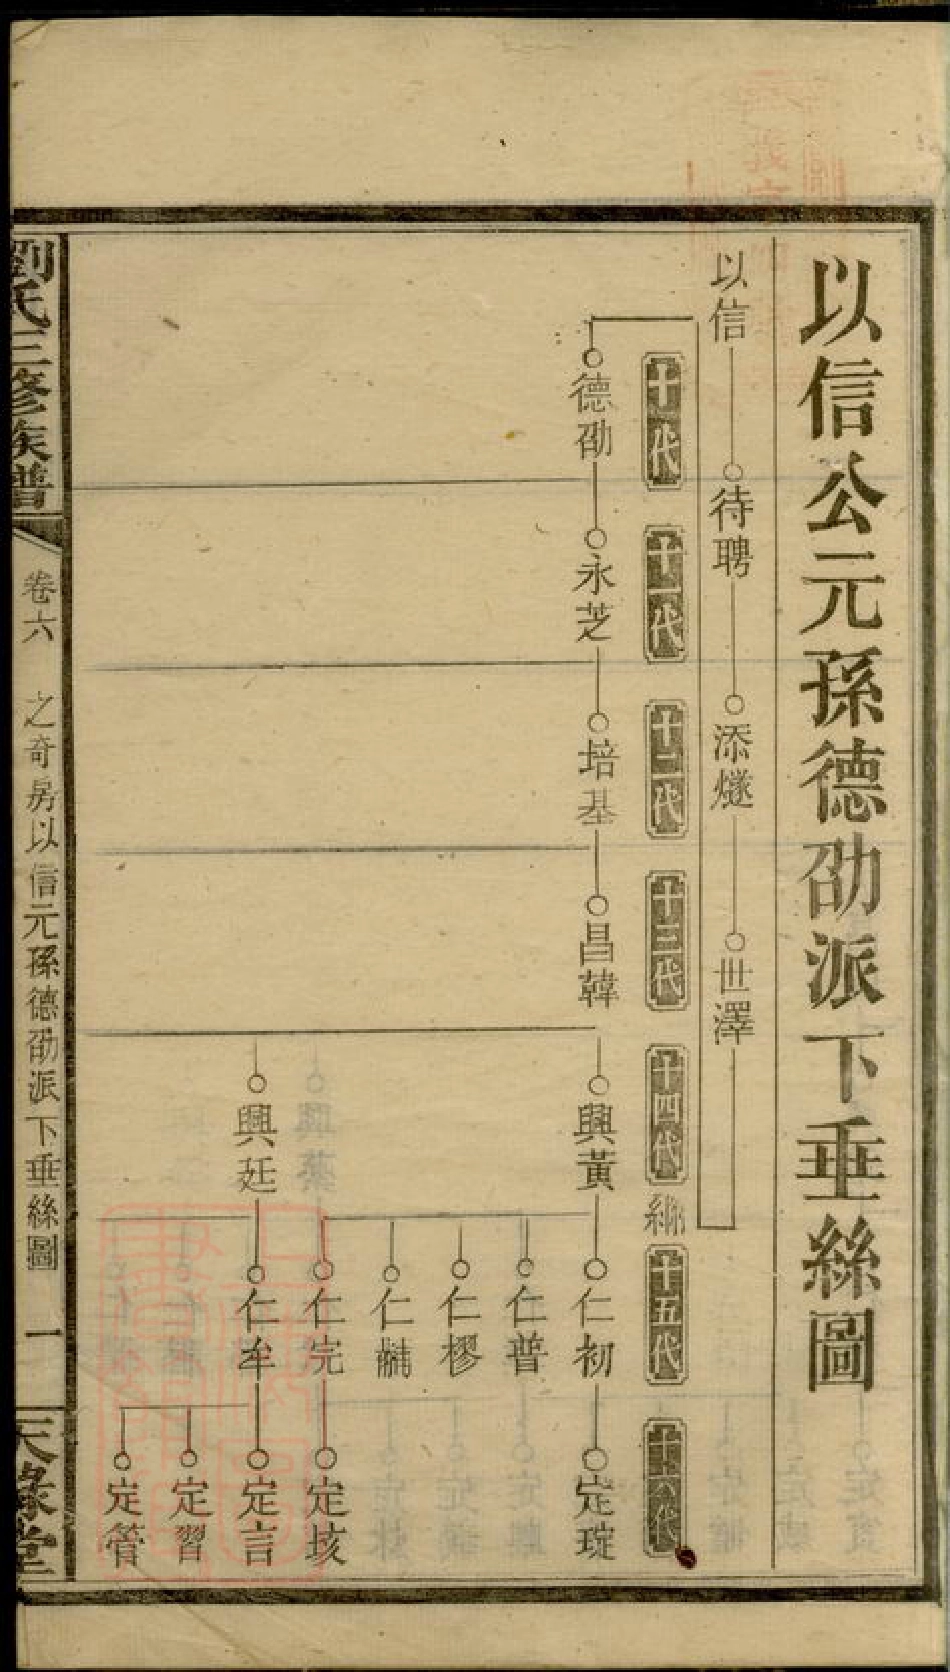 以信公元孫德劭派下垂絲圖
以信
待聘
添燧
世澤
十代
十一代
十二代
十三代
十四代
十五代
十六代
德劭
永芝
培基
昌韓
興黃
仁初
定琁
仁普
仁樛
仁
仁完
定垓
興廷
仁牟
定言
定習
定管
劉氏三修族譜
卷六
之奇房以信元孫德劭派下垂絲圖
一
天祿堂